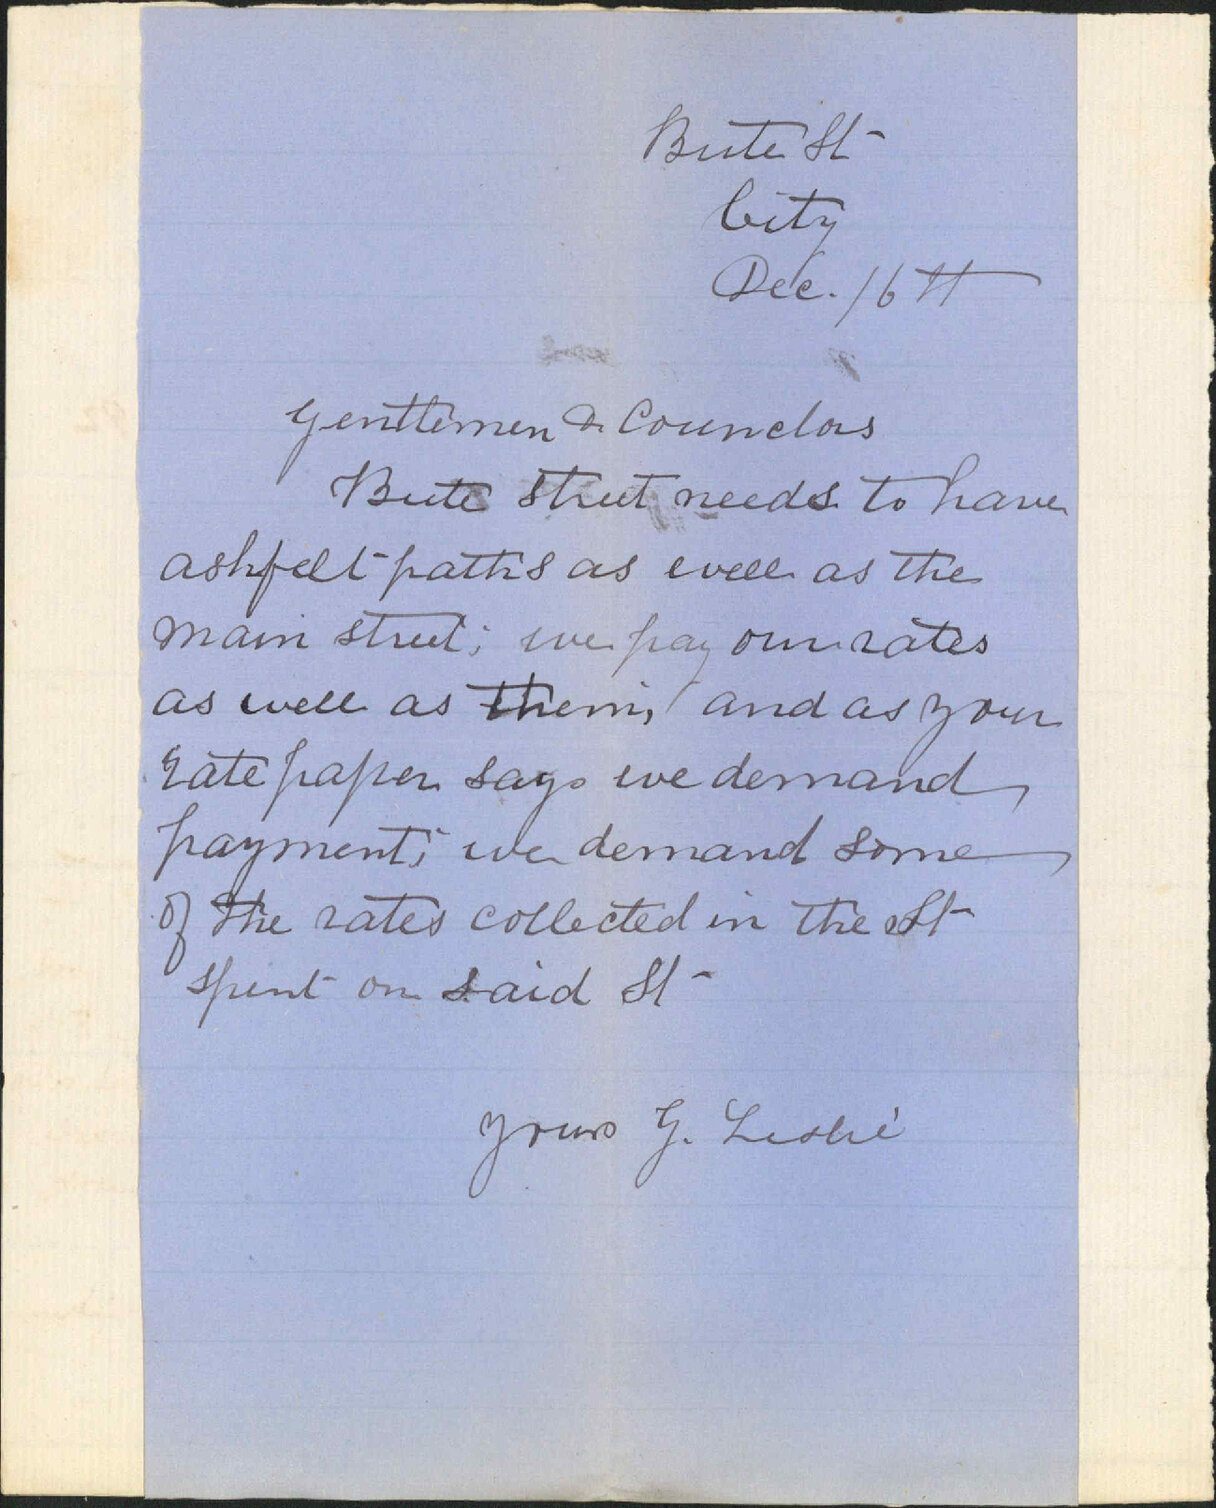 Bute St
City
Dec. 16th
Gentlemen & Counclors
Bute street needs to have
ashfelt paths as well as the
main street; we pay our rates
as well as them, and as your
rate paper says we demand
payment; we demand some
of the rates collected in the St
spent on said St
yours G. Leslie